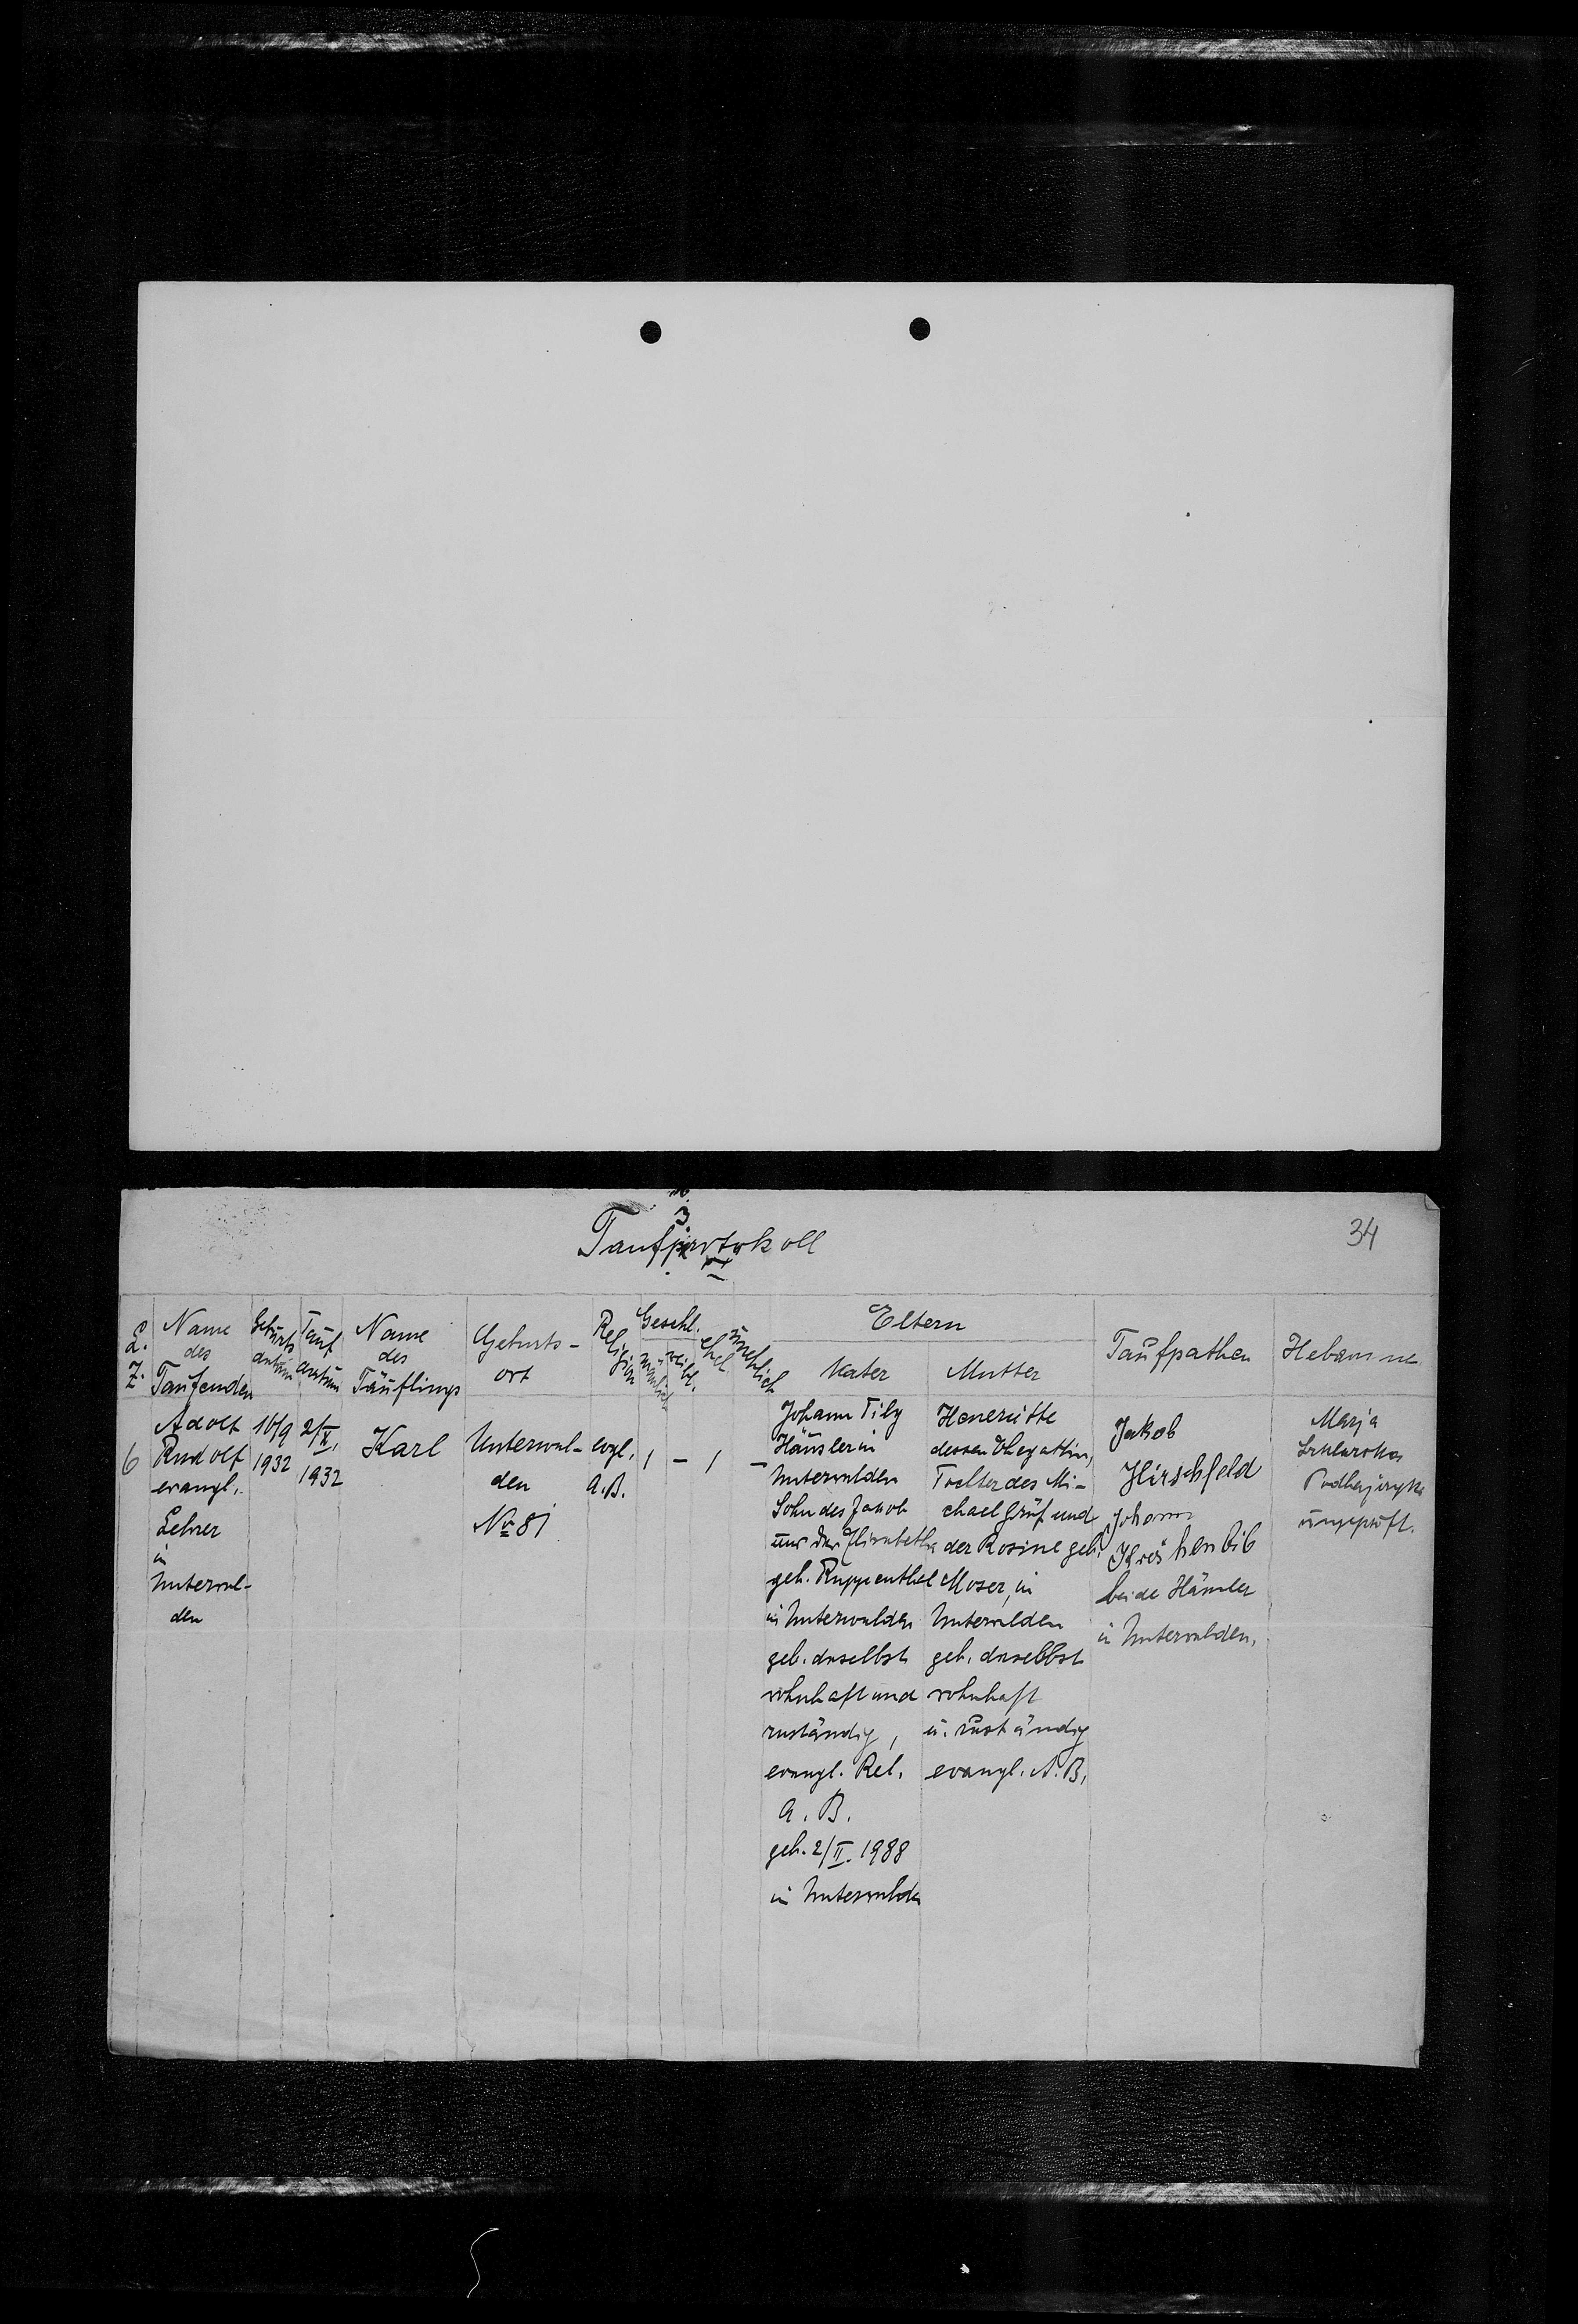 3.
34
Taufprotokoll
L. Z.
Name des Taufenden
Geburts datum
Tauf datum
Name des Täuflings
Geburts-ort
Religion
Geschl.
männlich
weibl.
ehel.
unehlich
Eltern
Vater
Mutter
Taufpathen
Hebamme
6
Adolf
Rudolf
evangl.
Lehrer
in
Unterwal-
den
16/9
1932
2/X.
1932
Karl
Unterwal-
den
No 81
evgl.
A.B.
1 - 1 -
Johann Tily
Häusler in
Unterwalden
Sohn des Jakob
und der Elisabetha
geb. Ruppenthal
in Unterwalden
geb. daselbst
wohnhaft und
zuständig,
evangl. Rel.
A. B.
geb. 2/II. 1988
in Unterwalden
Henriette
dessen Ehegattin,
Tochter des Mi-
chael Gräf und
der Rosine geb.
Moser, in
Unterwalden
geb. daselbst
wohnhaft
u. zuständig
evangl. A. B.
Jakob
Hirschfeld
Johann
beide Häusler
in Unterwalden.
Marja
ungeprüft.